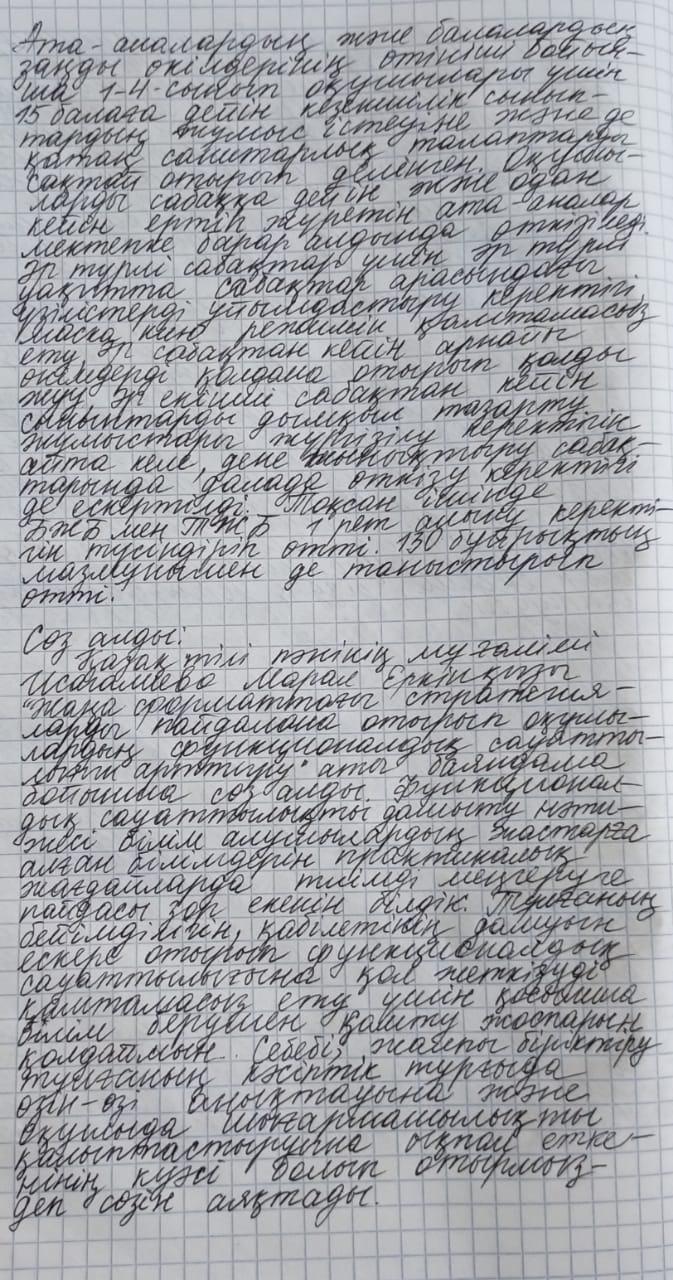 Ата-аналардың және балалардың
заңды өкілдерінің өтініші бойын-
ша 1-4-сынып оқушылары үшін
15 балаға дейін кезекшілік сынып-
тардың жұмыс істеуіне және де
қатаң санитарлық талаптарды
сақтай отырып делінген. Оқушы-
ларды сабаққа дейін және одан
кейін ертіп жүретін ата-аналар
мектепке барар алдында өткізіледі.
Әр түрлі сабақтар үшін әр түрлі
уақытта сабақтар арасындағы
үзілістерді ұйымдастыру керектігі,
маска кию режимін қамтамасыз
ету, әр сабақтан кейін арнайы
өкімдерді қолдана отырып қолды
жуу, әр екінші сабақтан кейін
сыныптарды дымқыл тазарту
жұмыстары жүргізілу керектігін
айта келе, дене шынықтыру сабақ-
тарында далада өткізу керектігі
де ескертілді. Тоқсан ішінде
БЖБ мен ТЖБ 1 рет алыну керекті-
гін түсіндіріп өтті. 130 бұйрықтың
мазмұнымен де таныстырып
өтті.
Сөз алды:
Қазақ тілі пәнінің мұғалімі
Исагамиева Марал Еркінқызы
"Жаңа форматтағы стратегия-
ларды пайдалана отырып оқушы-
лардың функционалдық сауатты-
лығын арттыру" атты баяндама
бойынша сөз алды. Функционал-
дық сауаттылықты дамыту нәти-
жесі білім алушылардың жастарға
алған білімдерін практикалық
жағдайларда тиімді меңгеруге
пайдасы зор екенін білдік. Тұлғаның
бейімділігін, қабілетінің дамуын
ескере отырып функционалдық
сауаттылығына қол жеткізуді
қамтамасыз ету үшін қосымша
білім берумен қамту жоспарын
қолдаймын. Себебі, жалпы біріктіру
тұлғаның кәсіптік тұрғыда
өзін-өзі анықтауына және
оқушыда шығармашылықты
қалыптастыруына ықпал етке-
нінің куәсі болып отырмыз-
деп сөзін аяқтады.